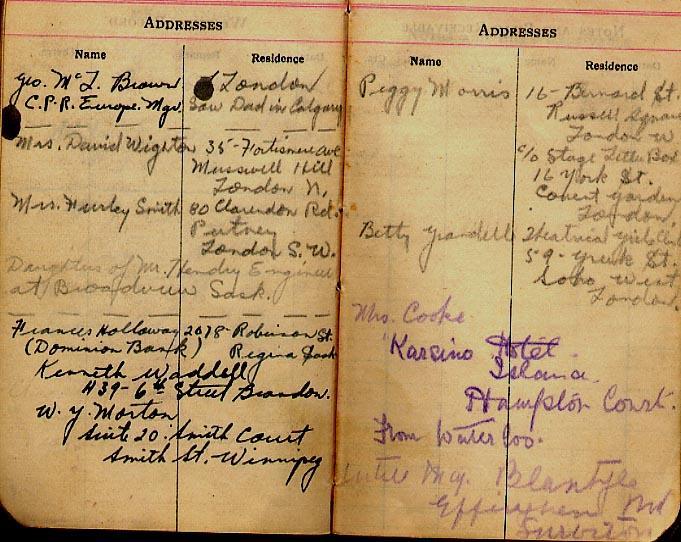 ADDRESSES
Name Residence
Geo. McL. Brown London
C.P.R. Europe. Mgr. Saw Dad in Calgary
Mrs. David Wighton 35-Fortismere Ave
Musswell Hill
London N,
Mrs. Hurley Smith 80 Clarendon Rd.
Putney
London S.W.
Daughter of Mr. Hendry Engineer
at Broadview Sask.
Frances Holloway 2078-Robinson St.
(Dominion Bank) Regina Sask
Kenneth Waddell
439-6th Street Brandon.
W. Y. Morton
Suite 20. Smith Court
Smith St. Winnipeg
ADDRESSES
Name Residence
Peggy Morris 16-Bernard St.
Russell Square
London W
c/o Stage Letter Box
16 York St.
Covent Garden
London,
Betty Grandell Theatrical Girls Club
59-Greek St.
Soho West
London.
Mrs. Cooke
"Karsino Hotel
Island
Hampton Court.
From Waterloo.
Blantyle
Effingham Rd
Surbiton